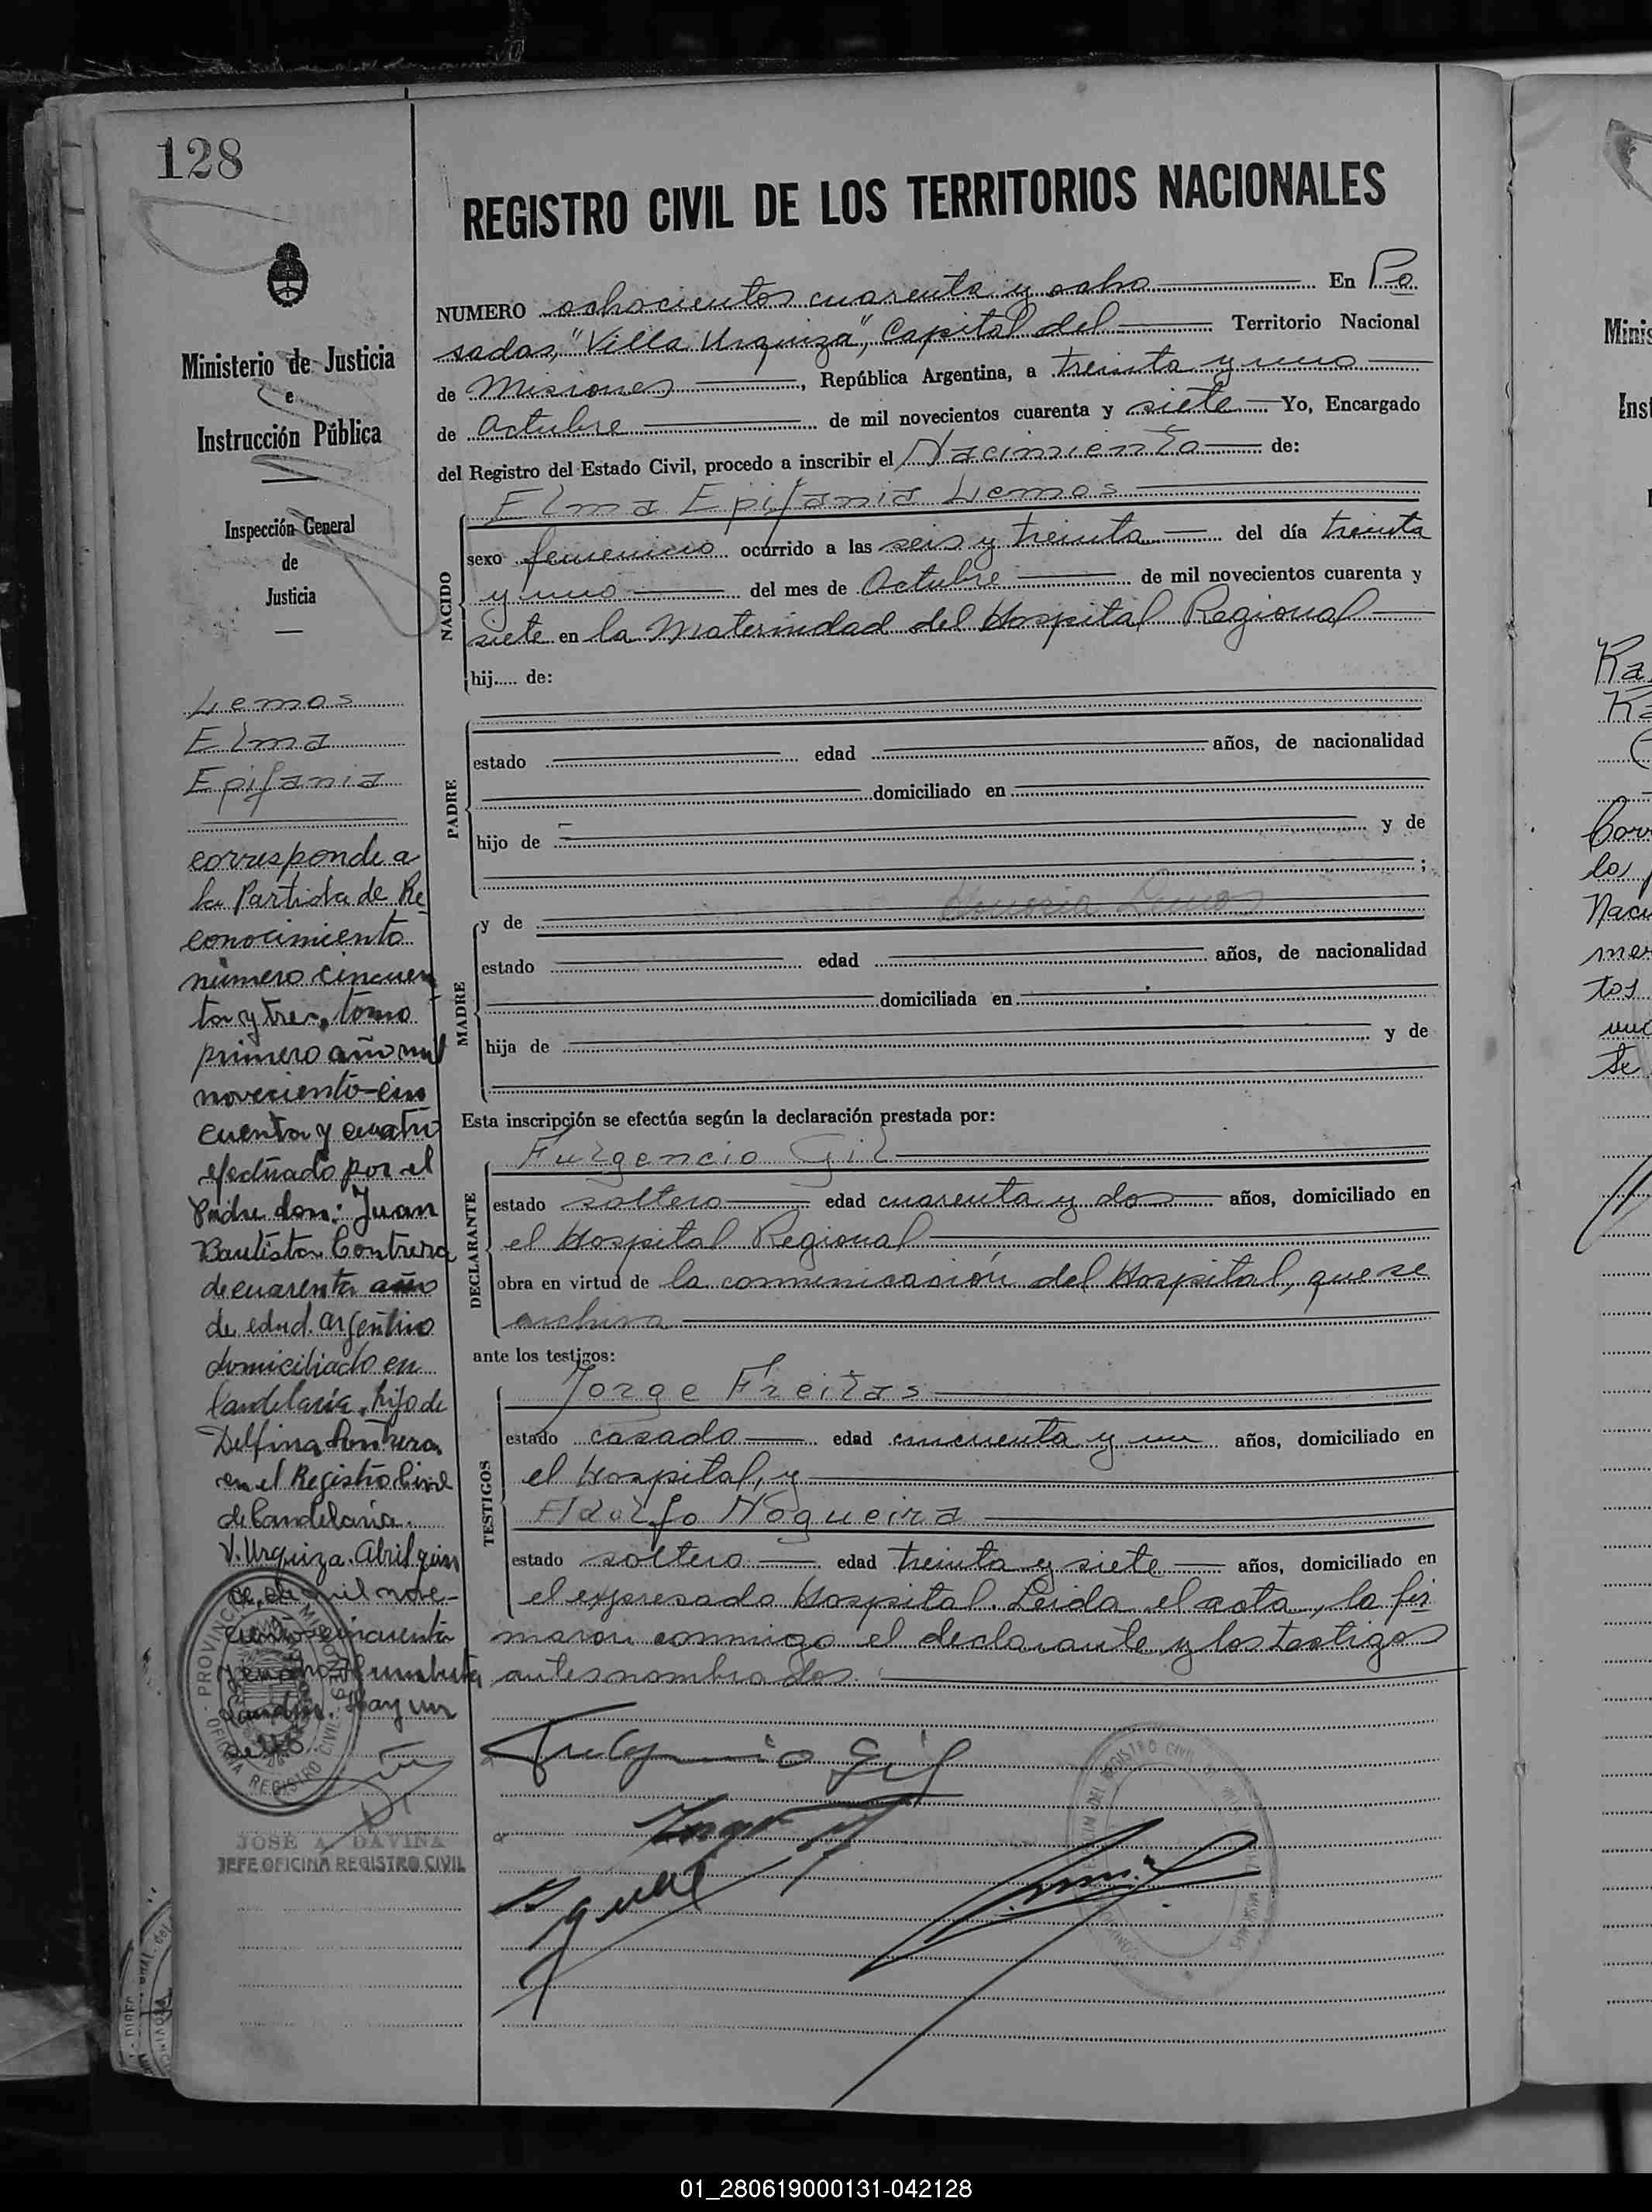 128
REGISTRO CIVIL DE LOS TERRITORIOS NACIONALES
NUMERO ochocientos cuarenta y ocho En Po
sadas, "Villa Urquiza", Capital del Territorio Nacional
de Misiones, República Argentina, a treinta y uno
de Octubre de mil novecientos cuarenta y siete Yo, Encargado
del Registro del Estado Civil, procedo a inscribir el Nacimiento de:
Elma Epifania Lemos
NACIDO
sexo femenino ocurrido a las seis y treinta del día treinta
y uno del mes de Octubre de mil novecientos cuarenta y
siete en la Maternidad del Hospital Regional
hij..... de:
PADRE
estado edad años, de nacionalidad
domiciliado en
hijo de y de
;
MADRE
y de Honoria Lemos
estado edad años, de nacionalidad
domiciliada en
hija de y de
Esta inscripción se efectúa según la declaración prestada por:
DECLARANTE
Fulgencio Gil
estado soltero edad cuarenta y dos años, domiciliado en
el Hospital Regional
obra en virtud de la comunicación del Hospital, que se
archiva
ante los testigos:
TESTIGOS
Jorge Freitas
estado casado edad cincuenta y un años, domiciliado en
el Hospital, y
Adolfo Nogueira
estado soltero edad treinta y siete años, domiciliado en
el expresado Hospital. Leida el acta, la fir
maron conmigo el declarante y los testigos
antes nombrados.
Fulgencio Gil
Ministerio de Justicia
e
Instrucción Pública
Inspección General
de
Justicia
Lemos
Elma
Epifania
corresponde a
la Partida de Re
conocimiento
número cincuen
ta y tres, tomo
primero año mil
noveciento cin
cuenta y cuatro
efectuado por el
Padre don: Juan
Bautista Contrera
de cuarenta año
de edad argentino
domiciliado en
Candelaria, hijo de
Delfina Contrera
en el Registro Civil
de Candelaria.
V. Urquiza. Abril quin
ce, de mil nove-
ciento cincuenta
Hay un
sello
PROVINCIA MISIONES
OFICINA REGISTRO CIVIL
JOSE A. DAVIÑA
JEFE OFICINA REGISTRO CIVIL
01_280619000131-042128